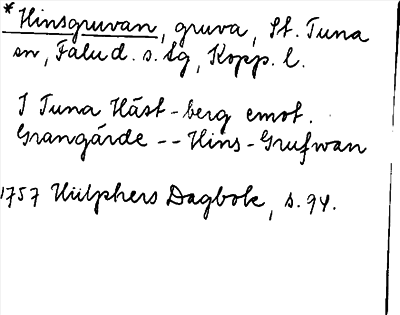 *Hinsgruvan, gruva, St. Tuna
sn, Falu d. s. lg, Kopp. l.
I Tuna Häst-berg emot.
Grangärde -- Hins-Grufwan
1757 Hülphers Dagbok, s. 94.